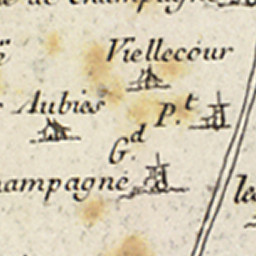 de Champagne
Viellecour
Aubies
P.t
G.d
hampagne
le